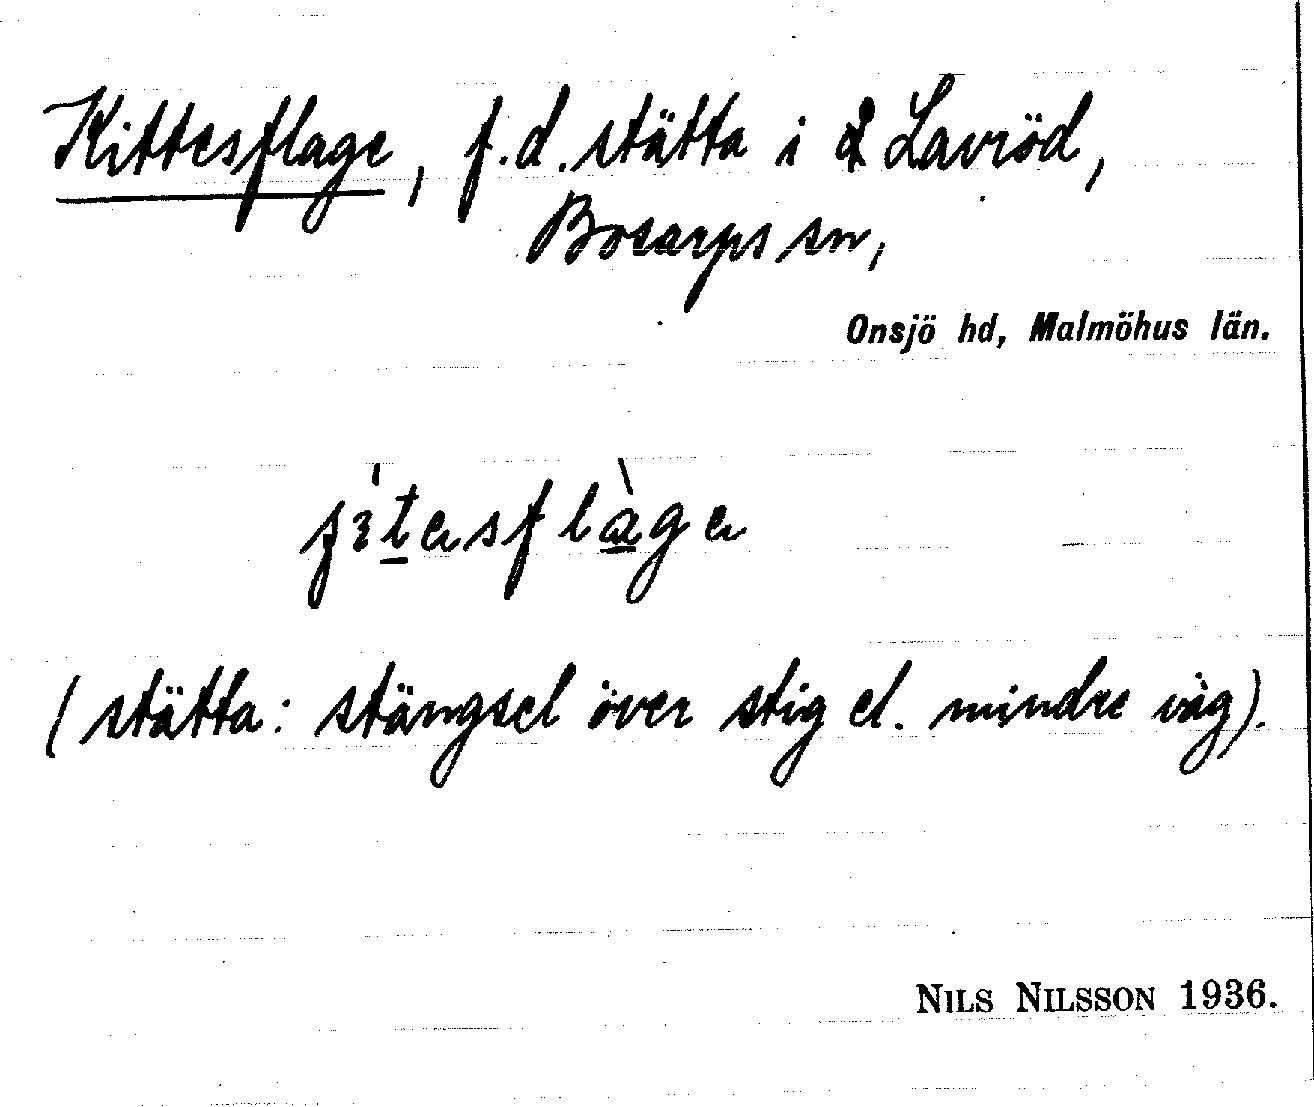 Kittesflage, f.d. stätta i Lavröd,
Bosarps sn,
Onsjö hd, Malmöhus län.
(stätta: stängsel över stig el. mindre väg).
NILS NILSSON 1936.